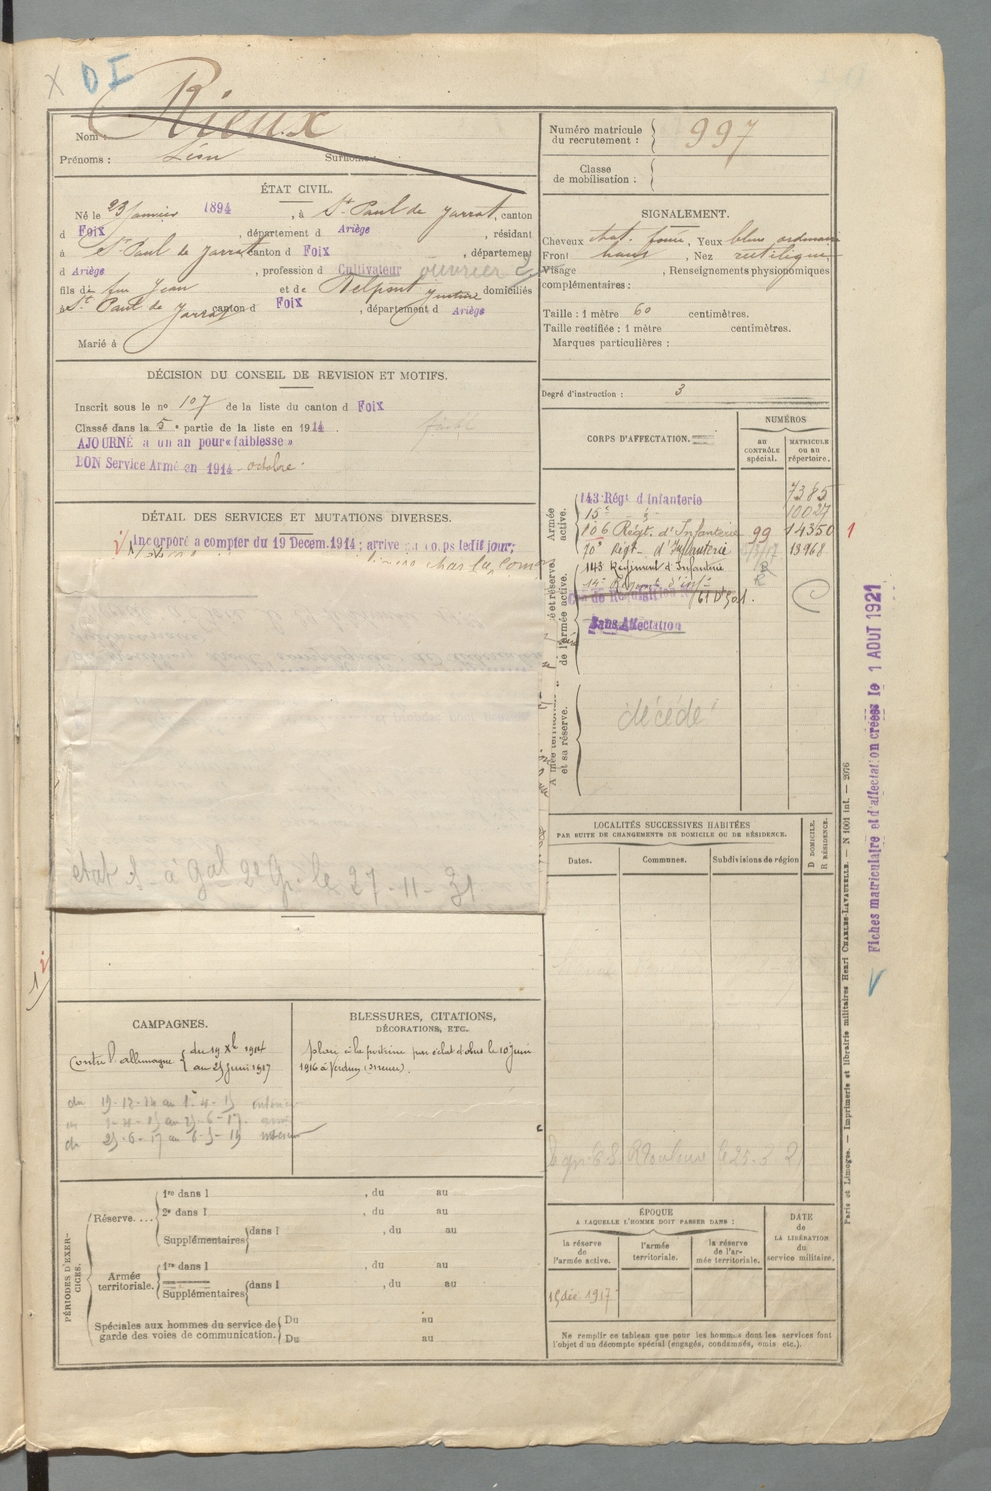 X D I
Nom : Rieux
Prénoms : Léon Surnom :
Numéro matricule du recrutement : 997
Classe de mobilisation :
ÉTAT CIVIL.
Né le 23 Janvier 1894, à St Paul de Jarrat, canton
d Foix, département d Ariège, résidant
à St Paul de Jarrat canton d Foix, département
d Ariège, profession d Cultivateur ouvrier
fils de feu Jean et de Delpont Justine domiciliés
à St Paul de Jarrat canton d Foix, département d Ariège
Marié à
SIGNALEMENT.
Cheveux chat. foncé, Yeux bleu ordinaire
Front haut, Nez rectiligne
Visage , Renseignements physionomiques
complémentaires :
Taille : 1 mètre 60 centimètres.
Taille rectifiée : 1 mètre centimètres.
Marques particulières :
Degré d'instruction : 3
DÉCISION DU CONSEIL DE REVISION ET MOTIFS.
Inscrit sous le no 107 de la liste du canton d Foix
Classé dans la 5e partie de la liste en 1914.
AJOURNÉ à un an pour « faiblesse »
BON Service Armé en 1914 - octobre.
DÉTAIL DES SERVICES ET MUTATIONS DIVERSES.
Incorporé à compter du 19 Decem. 1914; arrive au corps ledit jour;
etat S. a Gal 2e G. le 27-11-31
CORPS D'AFFECTATION.
NUMÉROS
au CONTRÔLE spécial.
MATRICULE ou au répertoire.
Armée active.
143 Régt d'Infanterie 7385
15e - d° - 10027
106 Régt. d'Infanterie 99 14350 1
70e Régt. d'Infanterie 13968
143 Régiment d'Infanterie
Sans Affectation
décédé
et sa réserve.
Fiches matriculaire et d'affectation créées le 1 AOUT 1921
LOCALITÉS SUCCESSIVES HABITÉES
PAR SUITE DE CHANGEMENTS DE DOMICILE OU DE RÉSIDENCE.
Dates. Communes. Subdivisions de région
D DOMICILE.
R RÉSIDENCE.
CAMPAGNES.
Contre l'allemagne du 19 Xbre 1914
au 25 Juin 1917
du 19-12-14 au 1-4-15 intérieur
de 25-6-17 au
BLESSURES, CITATIONS,
DÉCORATIONS, ETC.
plaie à la poitrine par éclat d'obus le 10 juin
1916 à Verdun (Meuse).
PÉRIODES D'EXERCICES.
Réserve....
1re dans l , du au
2e dans l , du au
Supplémentaires dans l , du au
Armée territoriale.
1re dans l , du au
Supplémentaires dans l , du au
Spéciales aux hommes du service de garde des voies de communication.
Du au
Du au
ÉPOQUE
A LAQUELLE L'HOMME DOIT PASSER DANS :
la réserve de l'armée active.
l'armée territoriale.
la réserve de l'armée territoriale.
DATE de LA LIBÉRATION du service militaire.
15 déc. 1917
Ne remplir ce tableau que pour les hommes dont les services font
l'objet d'un décompte spécial (engagés, condamnés, omis etc.).
Paris et Limoges. — Imprimerie et librairie militaires Henri CHARLES-LAVAUZELLE. — N 1001 int. — 2076